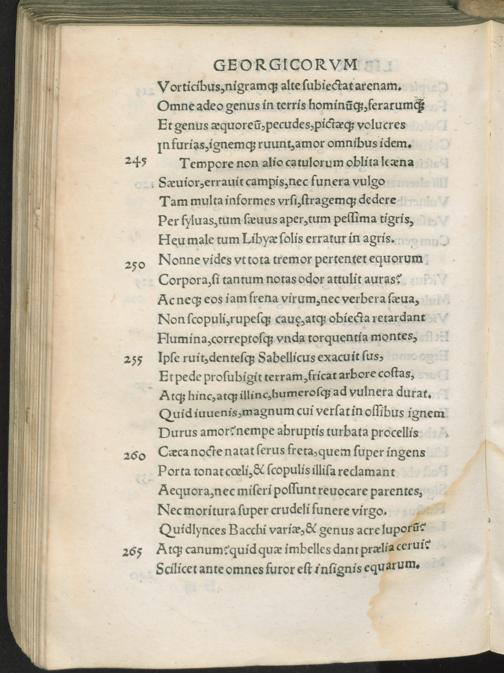 GEORGICORVM
Vorticibus,nigramq́; alte subiectat arenam.
Omne adeo genus in terris hominũq́;,ferarumq́;
Et genus æquoreũ,pecudes,pictæq́; volucres
In furias,ignemq́; ruunt,amor omnibus idem.
245 Tempore non alio catulorum oblita leæna
Sæuior,errauit campis,nec funera vulgo
Tam multa informes vrsi,stragemq́; dedere
Per syluas,tum sæuus aper,tum pessima tigris,
Heu male tum Libyæ solis erratur in agris.
250 Nonne vides vt tota tremor pertentet equorum
Corpora,si tantum notas odor attulit auras?
Ac neq; eos iam frena virum,nec verbera sæua,
Non scopuli,rupesq́; cauę,atq; obiecta retardant
Flumina,correptosq́; vnda torquentia montes,
255 Ipse ruit,dentesq́; Sabellicus exacuit sus,
Et pede prosubigit terram,fricat arbore costas,
Atq; hinc,atq; illinc,humerosq́; ad vulnera durat.
Quid iuuenis,magnum cui versat in ossibus ignem
Durus amor?nempe abruptis turbata procellis
260 Cæca nocte natat serus freta,quem super ingens
Porta tonat cœli,& scopulis illisa reclamant
Aequora,nec miseri possunt reuocare parentes,
Nec moritura super crudeli funere virgo.
Quid lynces Bacchi variæ,& genus acre luporũ?
265 Atq; canum?quid quæ imbelles dant prælia cerui?
Scilicet ante omnes furor est insignis equarum.